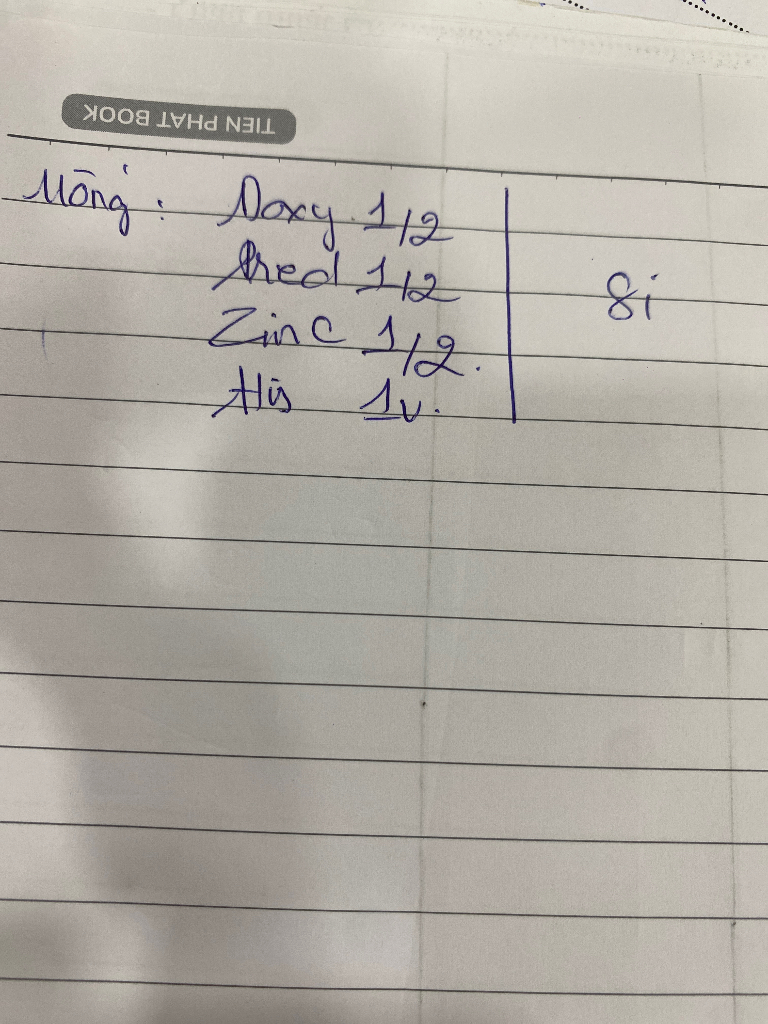 TIEN PHAT BOOK
Mōng :  Doxy 1/2
Pred 1/2
Zinc 1/2.
His 1v.
8i